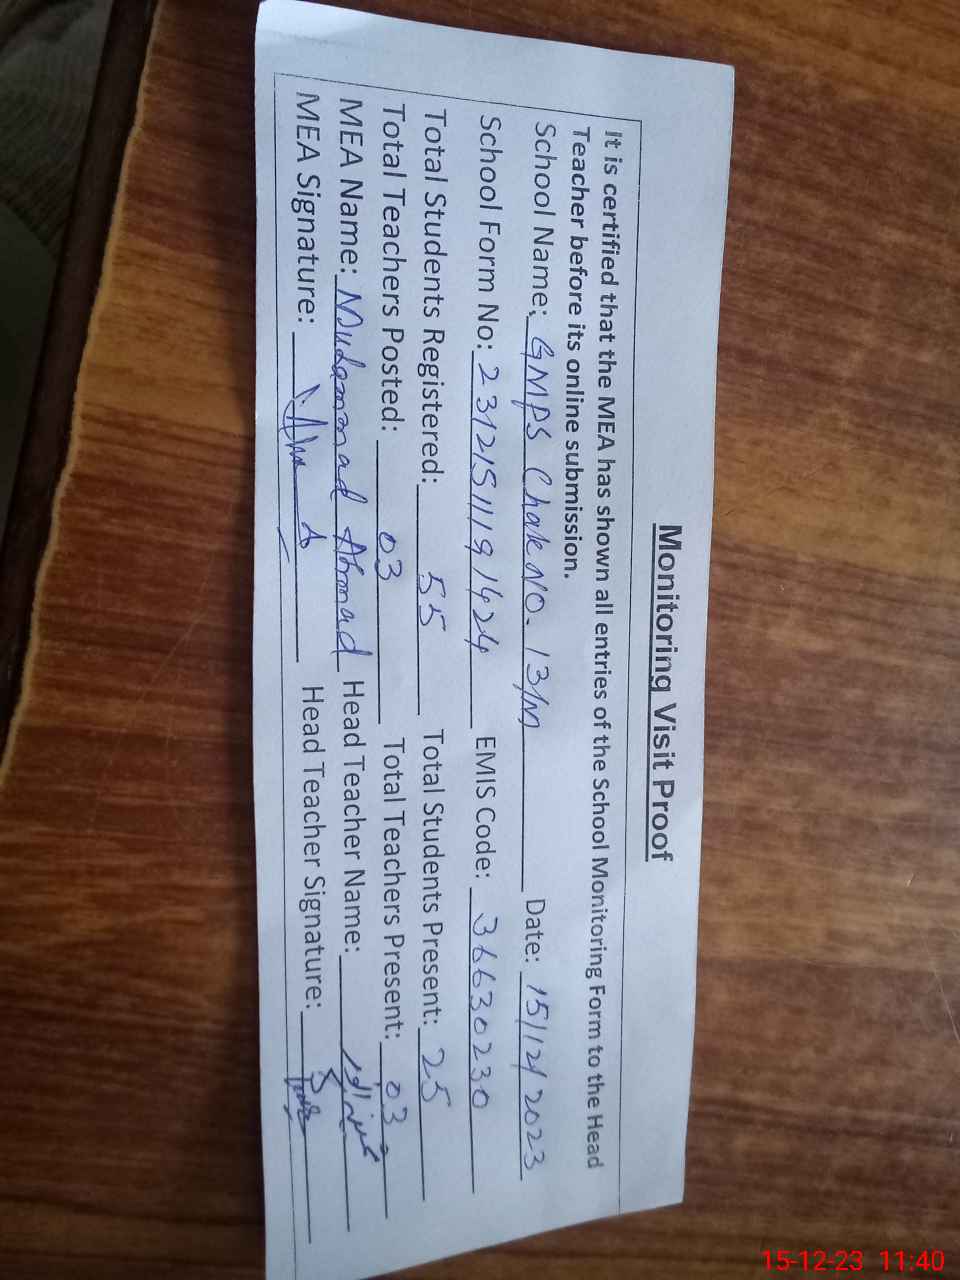 Monitoring Visit Proof
It is certified that the MEA has shown all entries of the School Monitoring Form to the Head
Teacher before its online submission.
School Name: GMPS Chak NO. 13/M Date: 15/12/2023
School Form No: 23121511191424 EMIS Code: 36630230
Total Students Registered: 55 Total Students Present: 25
Total Teachers Posted: 03 Total Teachers Present: 03
MEA Name: Muhammad Ahmad Head Teacher Name:
MEA Signature: Head Teacher Signature:
15-12-23 11:40